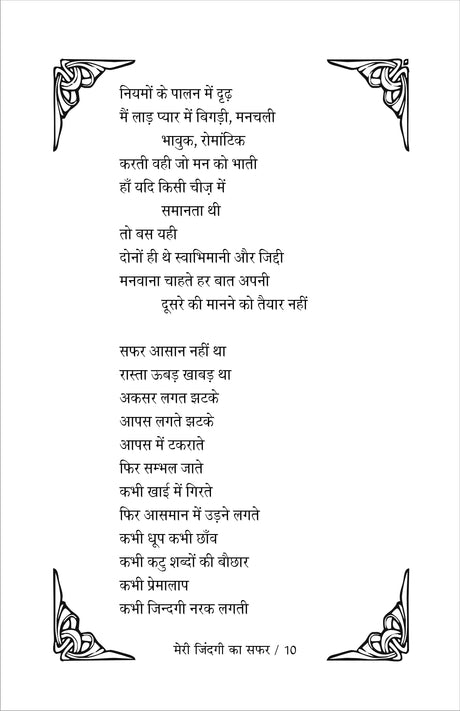 नियमों के पालन में दृढ़
मैं लाड़ प्यार में बिगड़ी, मनचली
भावुक, रोमांटिक
करती वही जो मन को भाती
हाँ यदि किसी चीज़ में
समानता थी
तो बस यही
दोनों ही थे स्वाभिमानी और जिद्दी
मनवाना चाहते हर बात अपनी
दूसरे की मानने को तैयार नहीं
सफर आसान नहीं था
रास्ता ऊबड़ खाबड़ था
अकसर लगत झटके
आपस लगते झटके
आपस में टकराते
फिर सम्भल जाते
कभी खाई में गिरते
फिर आसमान में उड़ने लगते
कभी धूप कभी छाँव
कभी कटु शब्दों की बौछार
कभी प्रेमालाप
कभी जिन्दगी नरक लगती
मेरी जिंदगी का सफर / 10